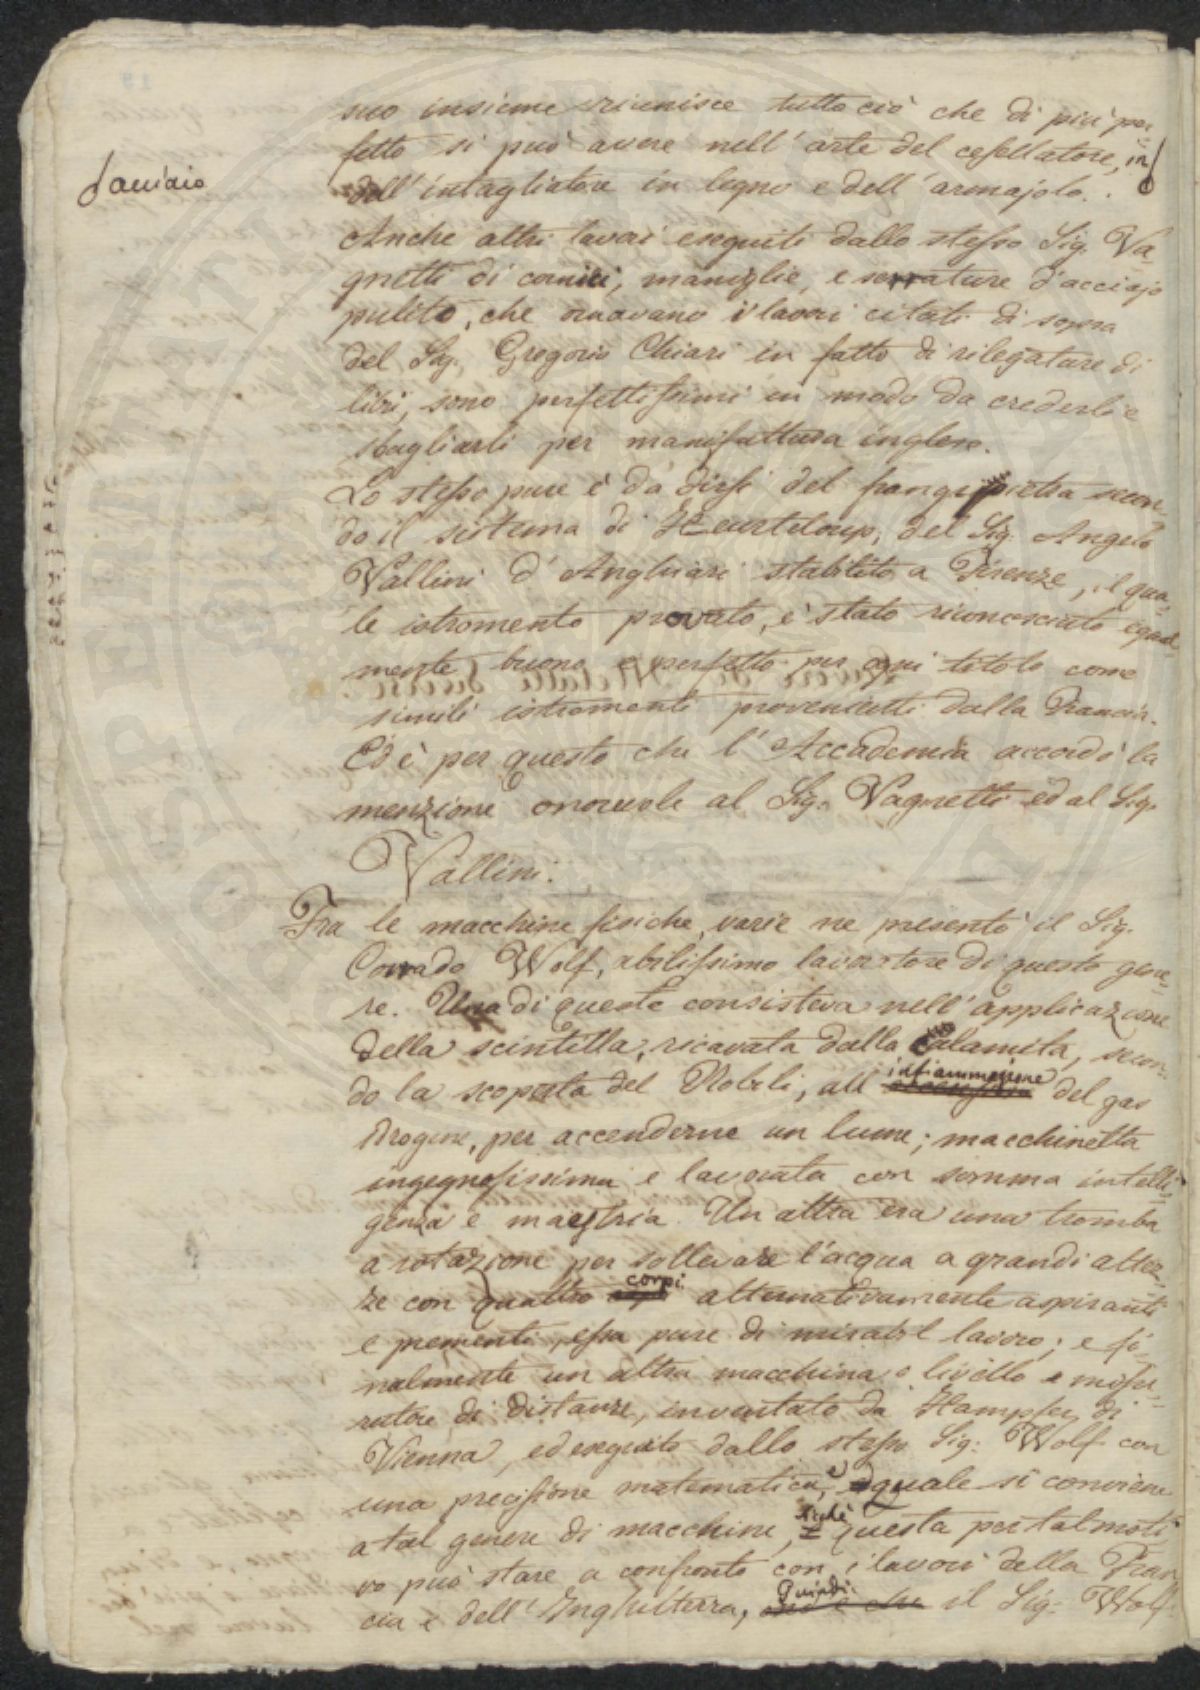 suo insieme riunisce tutto ciò che di più per
fetto si può avere nell'arte del cesellatore, in
dell'intagliatore in legno e dell'armajolo.
d'acciaio
Anche altri lavori eseguiti dallo stesso Sig. Va
gnetti di cornici, maniglie, e serrature d'acciajo
pulito, che ornavano i lavori citati di sopra
del Sig. Gregorio Chiari in fatto di rilegature di
libri, sono perfettissimi in modo da crederli e
sbagliarli per manifattura inglese.
Lo stesso pure è da dirsi del frangipietra secon-
do il sistema di Heurteloup, del Sig. Angelo
Vallini d'Anghiari stabilito a Firenze, il qua-
le istromento provato, è stato riconosciuto egual-
mente buono e perfetto per ogni titolo come
simili istromenti provenienti dalla Francia.
Ed è per questo che l'Accademia accordò la
menzione onorevole al Sig. Vagnetti ed al Sig.
Vallini.
Fra le macchine fisiche, varie ne presentò il Sig.
Corrado Wolf, abilissimo lavoratore di questo gene-
re. Una di queste consisteva nell'applicazione
della scintilla, ricavata dalla calamita, secon-
do la scoperta del Nobili, all' infiammazione del gas
Idrogene, per accenderne un lume; macchinetta
ingegnosissima e lavorata con somma intelli-
genza e maestria. Un altra era una tromba
a rotazione per sollevare l'acqua a grandi altez-
ze con quattro corpi alternativamente aspiranti
e prementi, essa pure di mirabil lavoro; e fi-
nalmente un altra macchina a livello e misu-
ratore di distanze, inventato da Stampfer di
Vienna, ed eseguito dallo stesso Sig. Wolf con
una precisione matematica, quale si conviene
a tal genere di macchine, talchè questa per tal moti
vo può stare a confronto con i lavori della Fran
cia e dell'Inghilterra, Quindi il Sig. Wolf